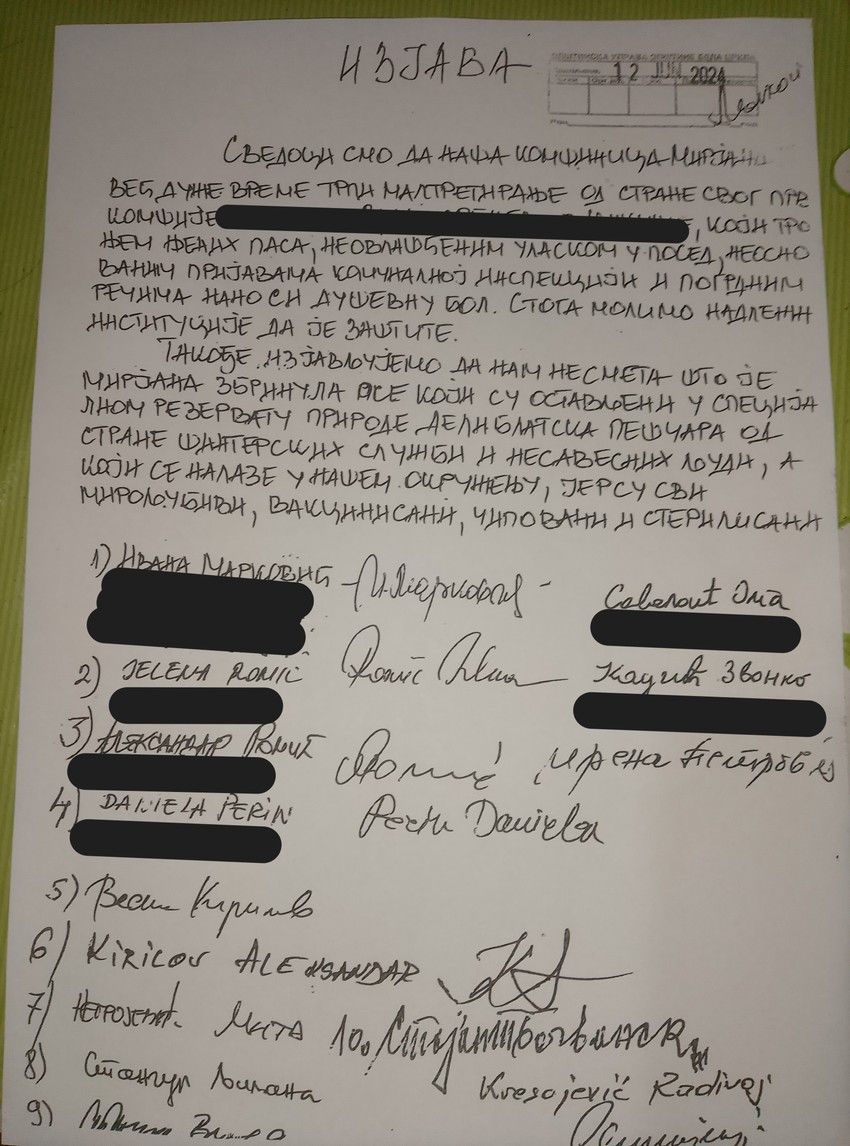 ИЗЈАВА
12 JUN 2024
СВЕДОЦИ СМО ДА НАША КОМШИНИЦА МИРЈАНА
ВЕЋ ДУЖЕ ВРЕМЕ ТРПИ МАЛТРЕТИРАЊЕ ОД СТРАНЕ СВОГ ПРВ
КОМШИЈЕ , КОЈИ ТРО
ЊЕМ ЊЕНИХ ПАСА, НЕОВЛАШЋЕНИМ УЛАСКОМ У ПОСЕД, НЕОСНО
ВАНИМ ПРИЈАВАМА КОМУНАЛНОЈ ИНСПЕКЦИЈИ И ПОГРДНИМ
РЕЧИМА НАНОСИ ДУШЕВНУ БОЛ. СТОГА МОЛИМО НАДЛЕЖН
ИНСТИТУЦИЈЕ ДА ЈЕ ЗАШТИТЕ.
ТАКОЂЕ ИЗЈАВЉУЈЕМО ДА НАМ НЕ СМЕТА ШТО ЈЕ
МИРЈАНА ЗБРИНУЛА ПСЕ КОЈИ СУ ОСТАВЉЕНИ У СПЕЦИЈА
ЛНОМ РЕЗЕРВАТУ ПРИРОДЕ ДЕЛИБЛАТСКА ПЕШЧАРА ОД
СТРАНЕ ШИНТЕРСКИХ СЛУЖБИ И НЕСАВЕСНИХ ЉУДИ, А
КОЈИ СЕ НАЛАЗЕ У НАШЕМ ОКРУЖЕЊУ, ЈЕР СУ СВИ
МИРОЉУБИВИ, ВАКЦИНИСАНИ, ЧИПОВАНИ И СТЕРИЛИСАНИ
1) ИВАНА МАРКОВИЋ И.Марковић
2) JELENA ROMIĆ Romić Кацић Звонко
3) АЛЕКСАНДАР РОМИЋ Ромић Ирена Петровић
4) DANIELA PERIN Perin Daniela
5)
6) KIRICOV ALEKSANDAR
7) МИТА 10.
8) Kresojević Radivoj
9)